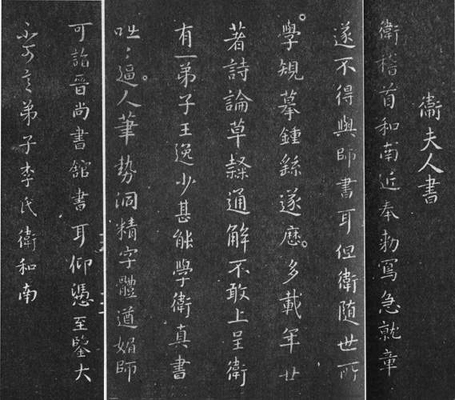 衛夫人書
衛稽首和南近奉勅寫急就章
遂不得與師書耳但衛隨世所
學規摹鍾繇遂歷多載年廿
著詩論草隸通解不敢上呈衛
有一弟子王逸少甚能學衛真書
咄々逼人筆勢洞精字體遒媚師
可詣晉尚書舘書耳仰憑至鑒大
不可言弟子李氏衛和南